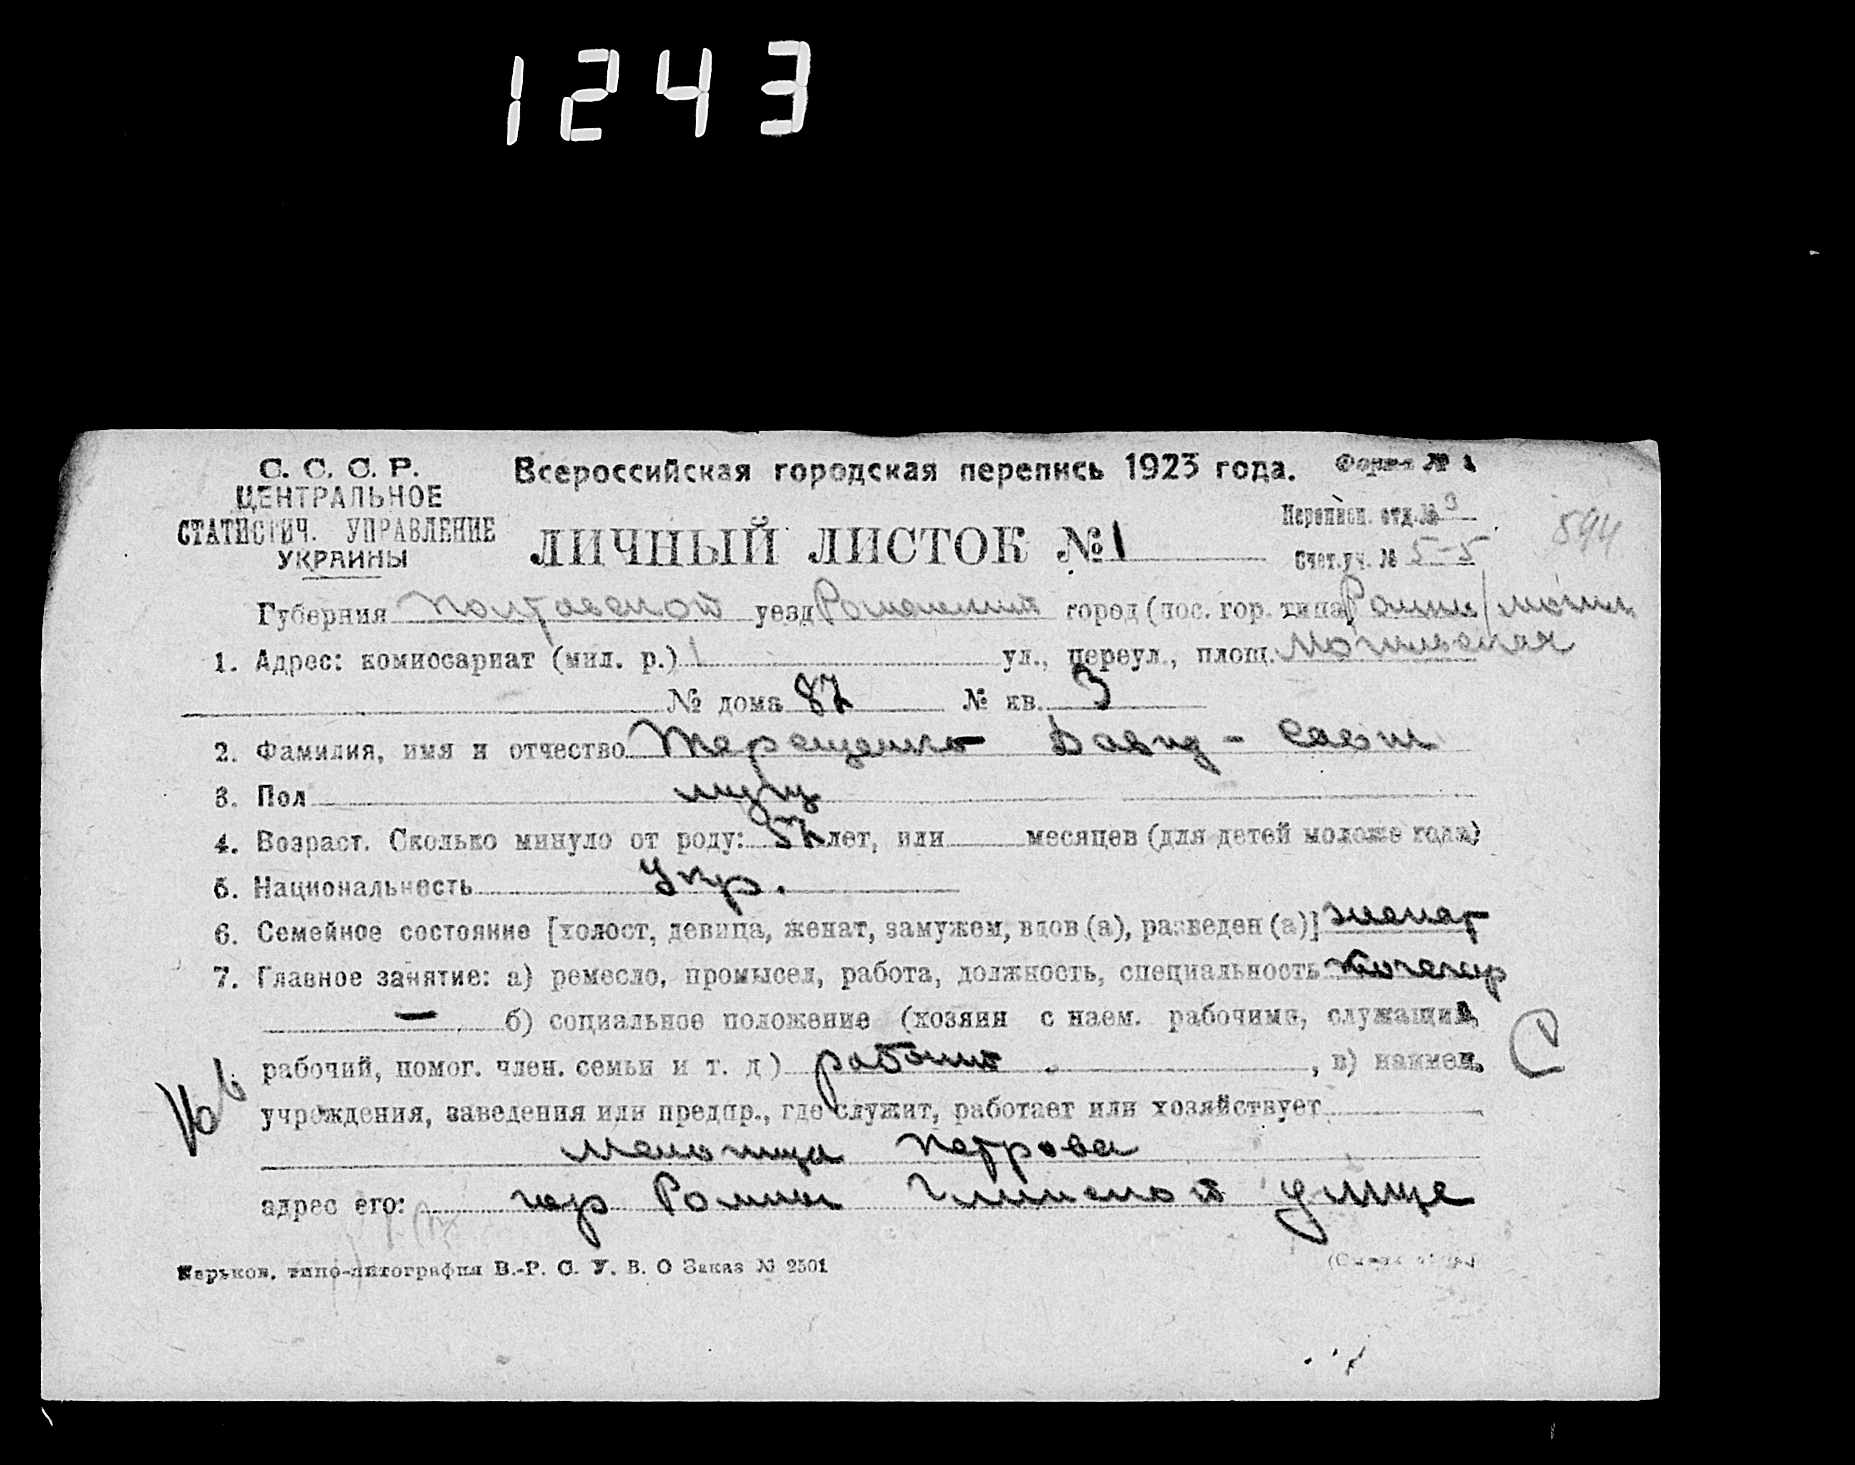 1243
С. С. С. Р.
ЦЕНТРАЛЬНОЕ
СТАТИСТИЧ. УПРАВЛЕНИЕ
УКРАИНЫ
Всероссийская городская перепись 1923 года.
Форма № 1
ЛИЧНЫЙ ЛИСТОК № 1
Переписн. отд. № 9
Счет. уч. № 5-5
594
Губерния Полтавской уезд Роменский город (пос. гор. типа Ромны
1. Адрес: комиссариат (мил. р.) 1 ул., переул., площ.
№ дома 87 № кв. 3
2. Фамилия, имя и отчество Терещенко Давид - Савт
3. Пол муж
4. Возраст. Сколько минуло от роду: 57 лет, или месяцев (для детей моложе года)
5. Национальность Укр.
6. Семейное состояние [холост, девица, женат, замужем, вдов (а), разведен (а)] женат
7. Главное занятие: а) ремесло, промысел, работа, должность, специальность кочегар
— б) социальное положение (хозяин с наем. рабочими, служащий,
рабочий, помог. член. семьи и т. д) рабочий , в) наимен.
учреждения, заведения или предпр., где служит, работает или хозяйствует
Петрова
адрес его: гор Ромны Глинской улице
Харьков, типо-литография В.-Р. С. У. В. О Заказ № 2501